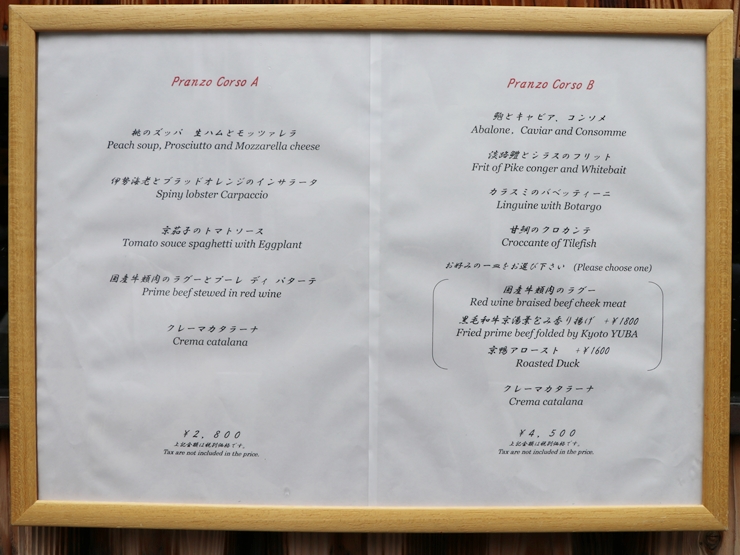 Pranzo Corso A
桃のズッパ 生ハムとモッツァレラ
Peach soup, Prosciutto and Mozzarella cheese
伊勢海老とブラッドオレンジのインサラータ
Spiny lobster Carpaccio
京茄子のトマトソース
Tomato souce spaghetti with Eggplant
国産牛頬肉のラグーとプーレ ディ パターテ
Prime beef stewed in red wine
クレーマカタラーナ
Crema catalana
¥2,800
上記金額は税別価格です。
Tax are not included in the price.
Pranzo Corso B
鮑とキャビア、コンソメ
Abalone, Caviar and Consomme
淡路鱧とシラスのフリット
Frit of Pike conger and Whitebait
カラスミのバベッティーニ
Linguine with Botargo
甘鯛のクロカンテ
Croccante of Tilefish
お好みの一皿をお選び下さい (Please choose one)
国産牛頬肉のラグー
Red wine braised beef cheek meat
黒毛和牛京湯葉包み香り揚げ +¥1800
Fried prime beef folded by Kyoto YUBA
京鴨アロースト +¥1600
Roasted Duck
クレーマカタラーナ
Crema catalana
¥4,500
上記金額は税別価格です。
Tax are not included in the price.